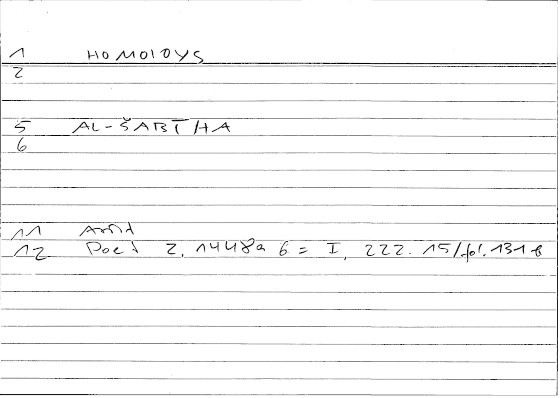 1 HOMOIOYS
2
5 AL-ŠABĪHA
6
11 Arist
12 Poet 2, 1448a 6 = I, 222.15/fol.131 b